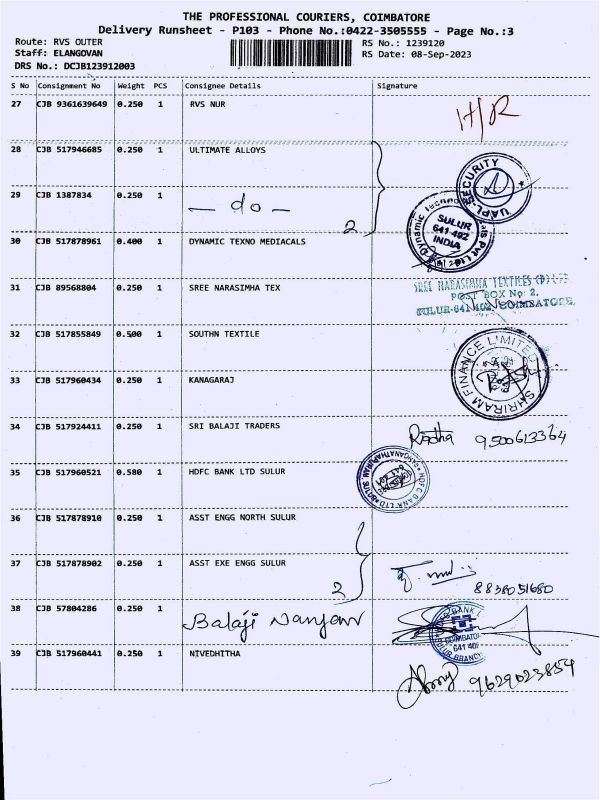 THE PROFESSIONAL COURIERS, COIMBATORE
Delivery Runsheet - P103 - Phone No.:0422-3505555 - Page No.:3
Route: RVS OUTER RS No.: 1239120
Staff: ELANGOVAN RS Date: 08-Sep-2023
DRS No.: DCJB123912003
S No Consignment No Weight PCS Consignee Details Signature
27 CJB 9361639649 0.250 1 RVS NUR
H/R
28 CJB 517946685 0.250 1 ULTIMATE ALLOYS
UAPL-SECURITY
29 CJB 1387834 0.250 1 — do —
2
SULUR
641 402
INDIA
30 CJB 517878961 0.400 1 DYNAMIC TEXNO MEDIACALS
31 CJB 89568804 0.250 1 SREE NARASIMHA TEX
SREE NARASIMHA TEXTILES (P) LTD
POST BOX No: 2,
SULUR-641 402, COIMBATORE.
32 CJB 517855849 0.500 1 SOUTHN TEXTILE
SHRIRAM FINANCE LIMITED
33 CJB 517960434 0.250 1 KANAGARAJ
34 CJB 517924411 0.250 1 SRI BALAJI TRADERS
Radha 9500613364
35 CJB 517960521 0.580 1 HDFC BANK LTD SULUR
HDFC BANK LTD
36 CJB 517878910 0.250 1 ASST ENGG NORTH SULUR
37 CJB 517878902 0.250 1 ASST EXE ENGG SULUR
2
8838051680
38 CJB 57804286 0.250 1 Balaji Nanjan
BANK
COIMBATORE
641 402
BRANCH
39 CJB 517960441 0.250 1 NIVEDHITHA
9629023854